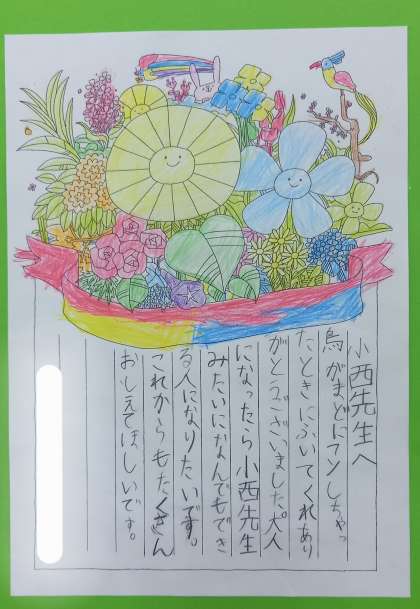 小西先生へ
鳥がまどにフンしちゃっ
たときにふいてくれあり
がとうございました。大人
になったら小西先生
みたいになんでもでき
る人になりたいです。
これからもたくさん
おしえてほしいです。